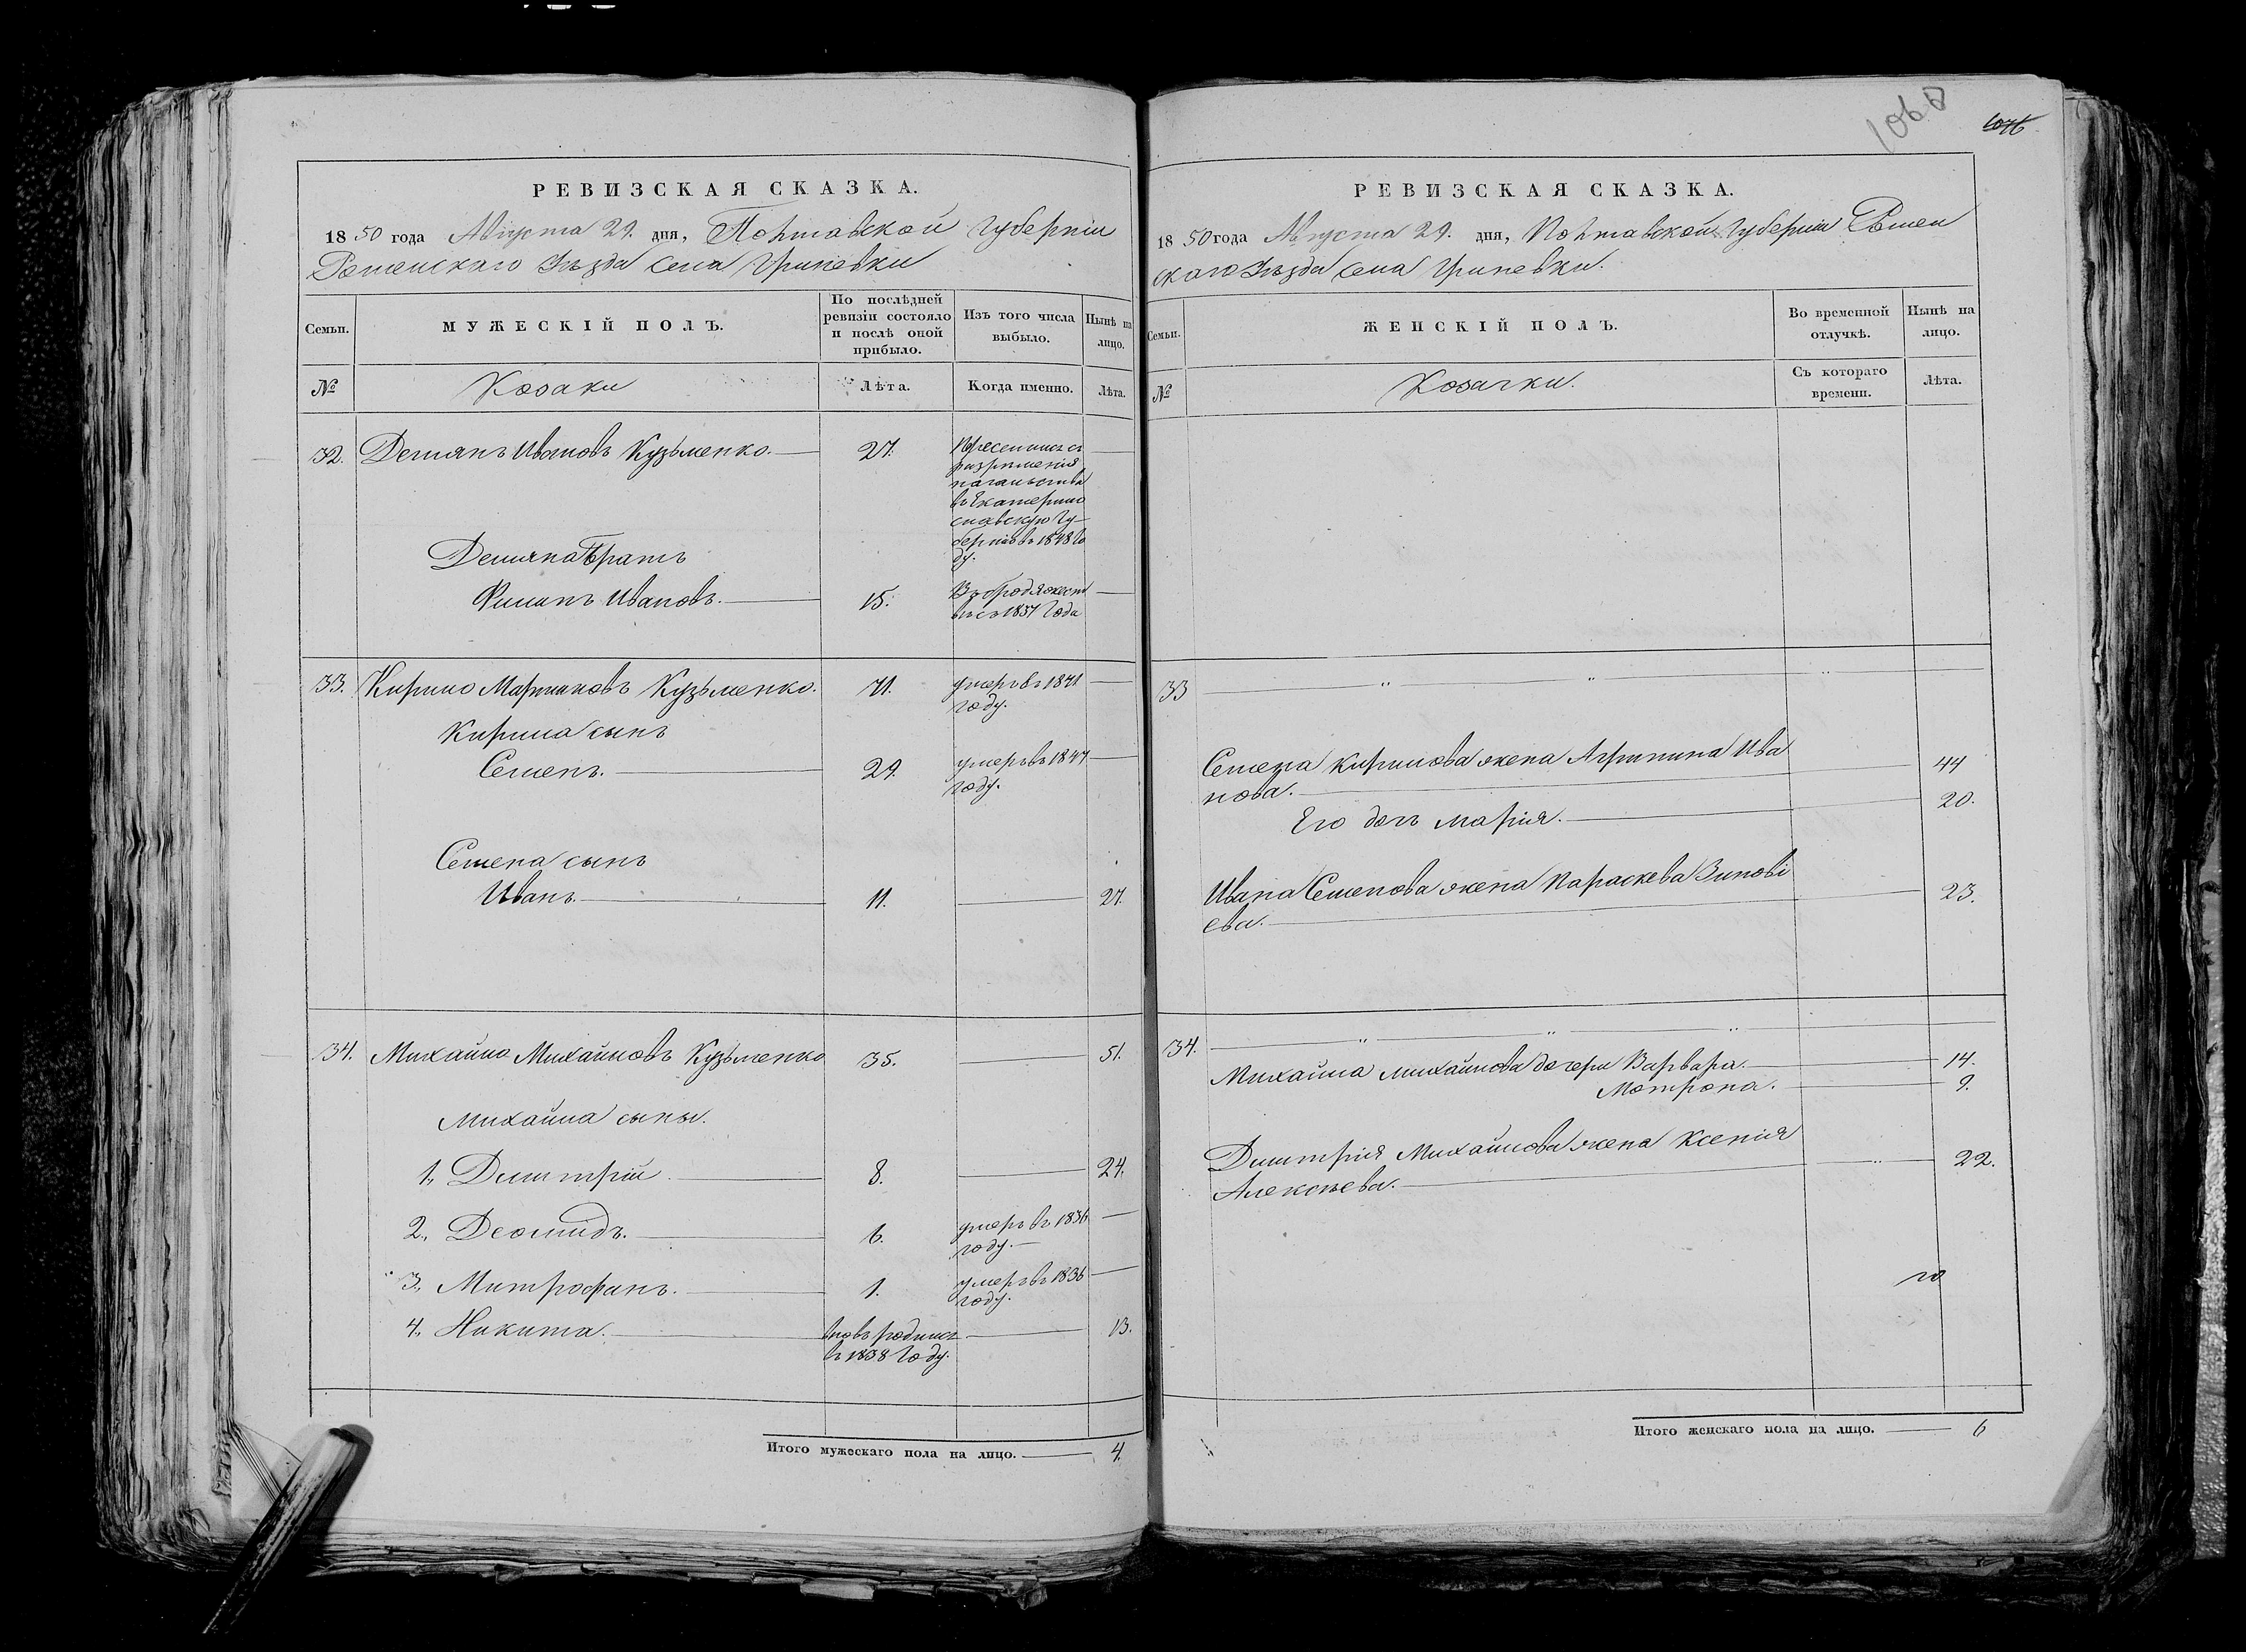 1068
1046
РЕВИЗСКАЯ СКАЗКА.
1850 года Августа 29. дня, Полтавской Губерніи
Роменскаго Уѣзда Села Гриневки
Семьи.
МУЖЕСКІЙ ПОЛЪ.
По послѣдней ревизіи состояло и послѣ оной прибыло.
Изъ того числа выбыло.
Нынѣ на лицо.
№
Козаки
Лѣта.
Когда именно.
Лѣта.
32. Демьянъ Ивановъ Кузьменко. 27.
Переселился съ
разрешенія
начальства
въ Екатерино
славскую Гу-
бернію въ 1848 го
ду.
Демьяна братъ
Филипъ Ивановъ. 15.
Въ бродяжест
вѣ съ 1837 года
33. Кирило Мартиновъ Кузьменко. 71. умеръ въ 1841
году.
Кирила сынъ
Семенъ. 29. умеръ въ 1847
году.
Семена сынъ
Иванъ. 11. 27.
34. Михайло Михайловъ Кузьменко 35. 51.
Михайла сыны.
1., Димитрій. 8. 24.
2., Леонидъ. 6. умеръ въ 1836
году.
3., Митрофанъ. 1. умеръ въ 1836
году.
4., Никита. вновь родился 13.
въ 1838 году.
Итого мужескаго пола на лицо. 4.
РЕВИЗСКАЯ СКАЗКА.
1850 года Августа 29. дня, Полтавской Губерніи Ромен
скаго Уѣзда Села Гриневки.
Семьи.
ЖЕНСКІЙ ПОЛЪ.
Во временной отлучкѣ.
Нынѣ на лицо.
№
Козачки.
Съ котораго времени.
Лѣта.
33
Семена Кирилова жена Агрипина Ива 44
нова.
Его дочь Марія. 20.
Ивана Семенова жена Параскева Зинові 23.
ева.
34.
Михайла Михайлова дочери Варвара. 14.
Мотрона. 9.
Димитрія Михайлова жена Ксенія 22.
Алексѣева.
Итого женскаго пола на лицо. 6